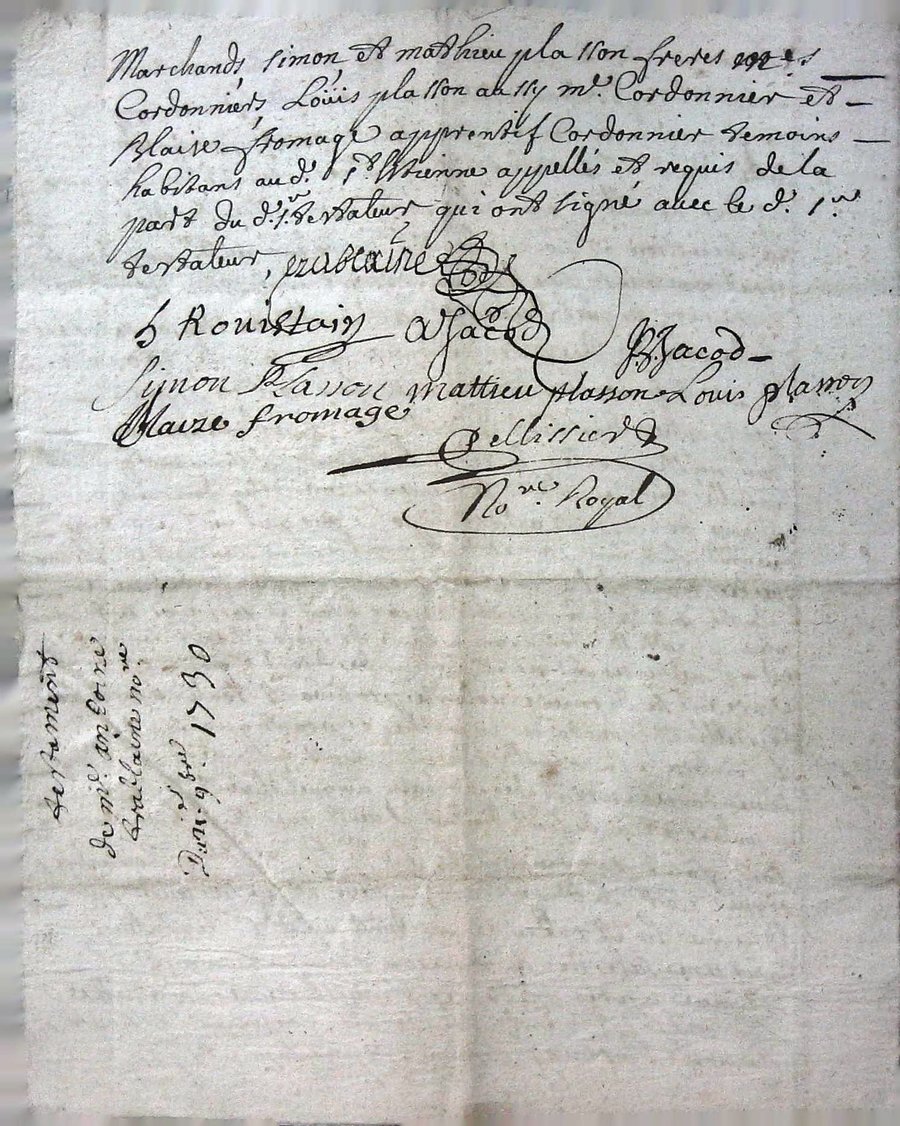 Marchands, simon et mathieu plasson freres m.es
Cordonniers, Loüis plasson aussy me. Cordonnier et
Blaise fromage apprentif Cordonnier temoins
habitans aud. st. Etienne appellés et requis de la
part du d. sr. testateur qui ont signé avec le d. sr.
testateur,
h Roustain AJacod JBJacod
Simon Plasson Mattieu plasson Louis plasson
Blaize fromage
Pellissier
Nore. Royal
testament
de me.
nore.
1730